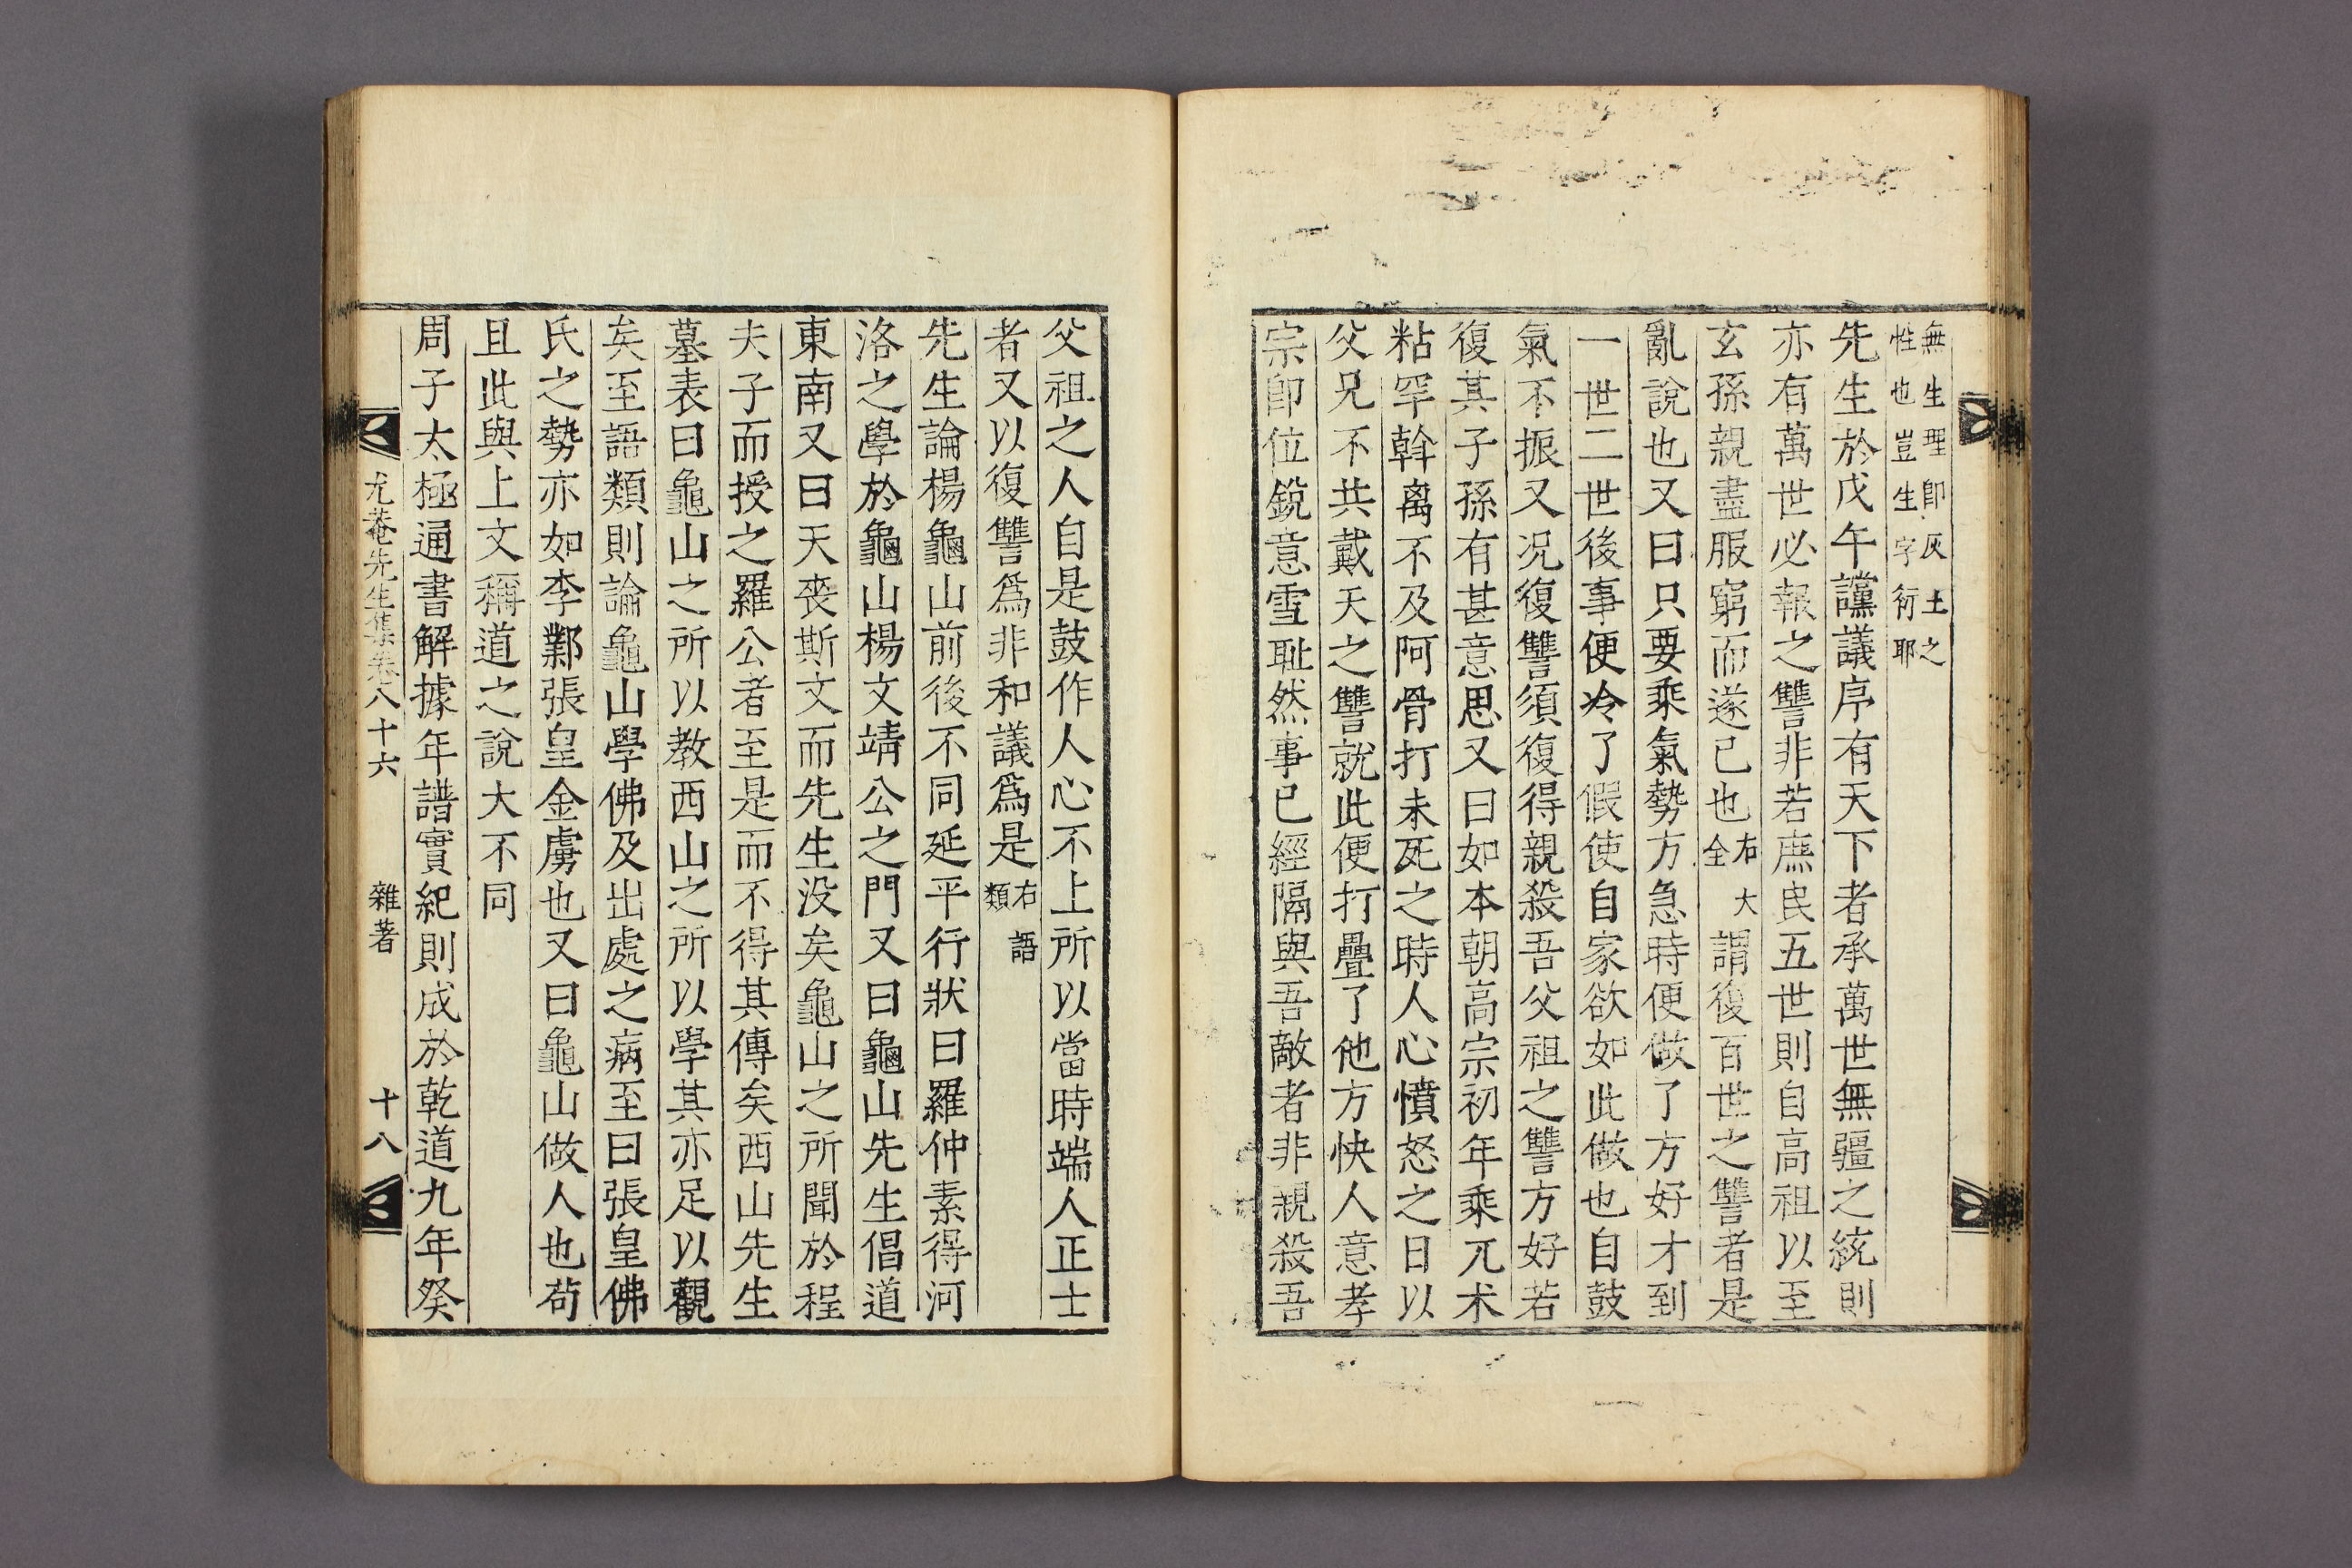 無生理卽灰土之
性也豈生字衍耶
先生於戊午讜議序有天下者承萬世無疆之統則
亦有萬世必報之讐非若庶民五世則自高祖以至
玄孫親盡服窮而遂已也右大全謂復百世之讐者是
亂說也又曰只要乘氣勢方急時便做了方好才到
一世二世後事便冷了假使自家欲如此做也自鼓
氣不振又况復讐須復得親殺吾父祖之讐方好若
復其子孫有甚意思又曰如本朝高宗初年乘兀朮
粘罕斡离不及阿骨打未死之時人心憤怒之日以
父兄不共戴天之讐就此便打疊了他方快人意孝
宗卽位銳意雪耻然事已經隔與吾敵者非親殺吾
父祖之人自是鼓作人心不上所以當時端人正士
者又以復讐爲非和議爲是右語類
先生論楊龜山前後不同延平行狀曰羅仲素得河
洛之學於龜山楊文靖公之門又曰龜山先生倡道
東南又曰天喪斯文而先生沒矣龜山之所聞於程
夫子而授之羅公者至是而不得其傳矣西山先生
墓表曰龜山之所以教西山之所以學其亦足以觀
矣至語類則論龜山學佛及出處之病至曰張皇佛
氏之勢亦如李鄴張皇金虜也又曰龜山做人也苟
且此與上文稱道之說大不同
周子太極通書解據年譜實紀則成於乾道九年癸
尤菴先生集卷八十六 雜著 十八